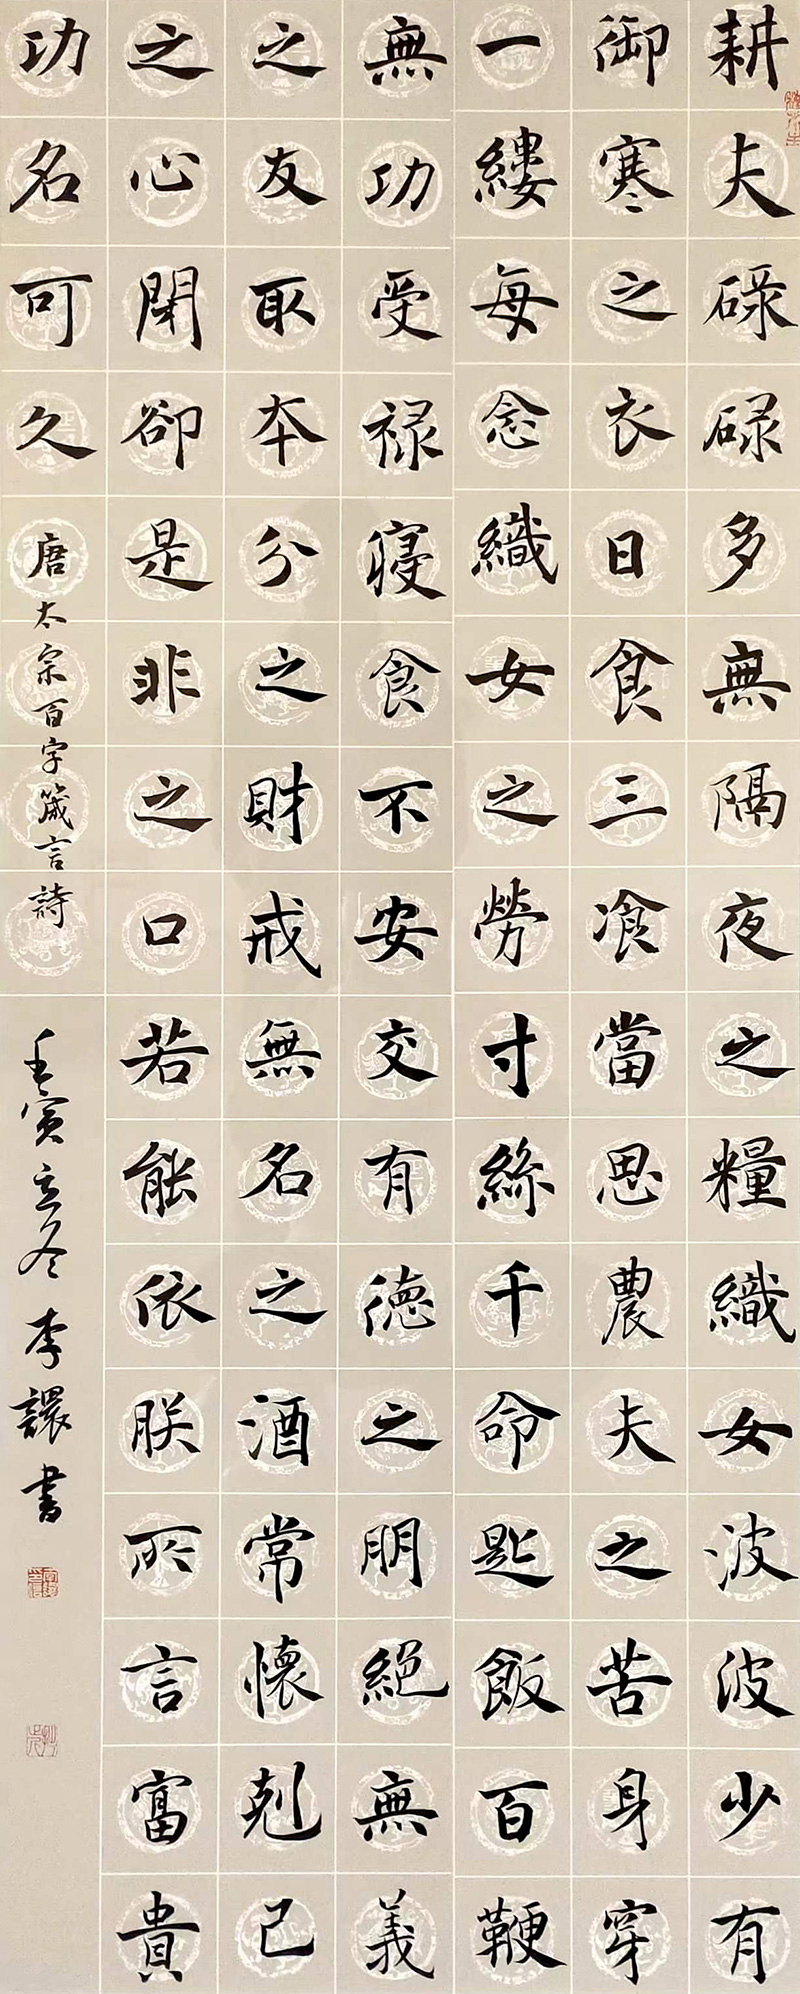 耕夫碌碌多無隔夜之糧織女波波少有
御寒之衣日食三飡當思農夫之苦身穿
一縷每念織女之勞寸絲千命匙飯百鞭
無功受禄寢食不安交有徳之朋絕無義
之友取本分之財戒無名之酒常懷剋己
之心閉卻是非之口若能依朕所言富貴
功名可久
唐太宗百字箴言詩
壬寅立冬李譞書